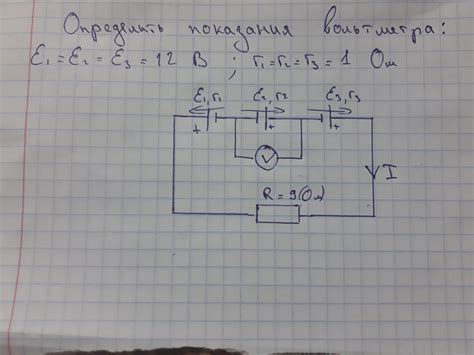 Определить показания вольтметра:
Ɛ₁ = Ɛ₂ = Ɛ₃ = 12 В ; r₁ = r₂ = r₃ = 1 Ом
Ɛ₁,r₁ Ɛ₂,r₂ Ɛ₃,r₃
+ + +
V I
R = 9(Ом)